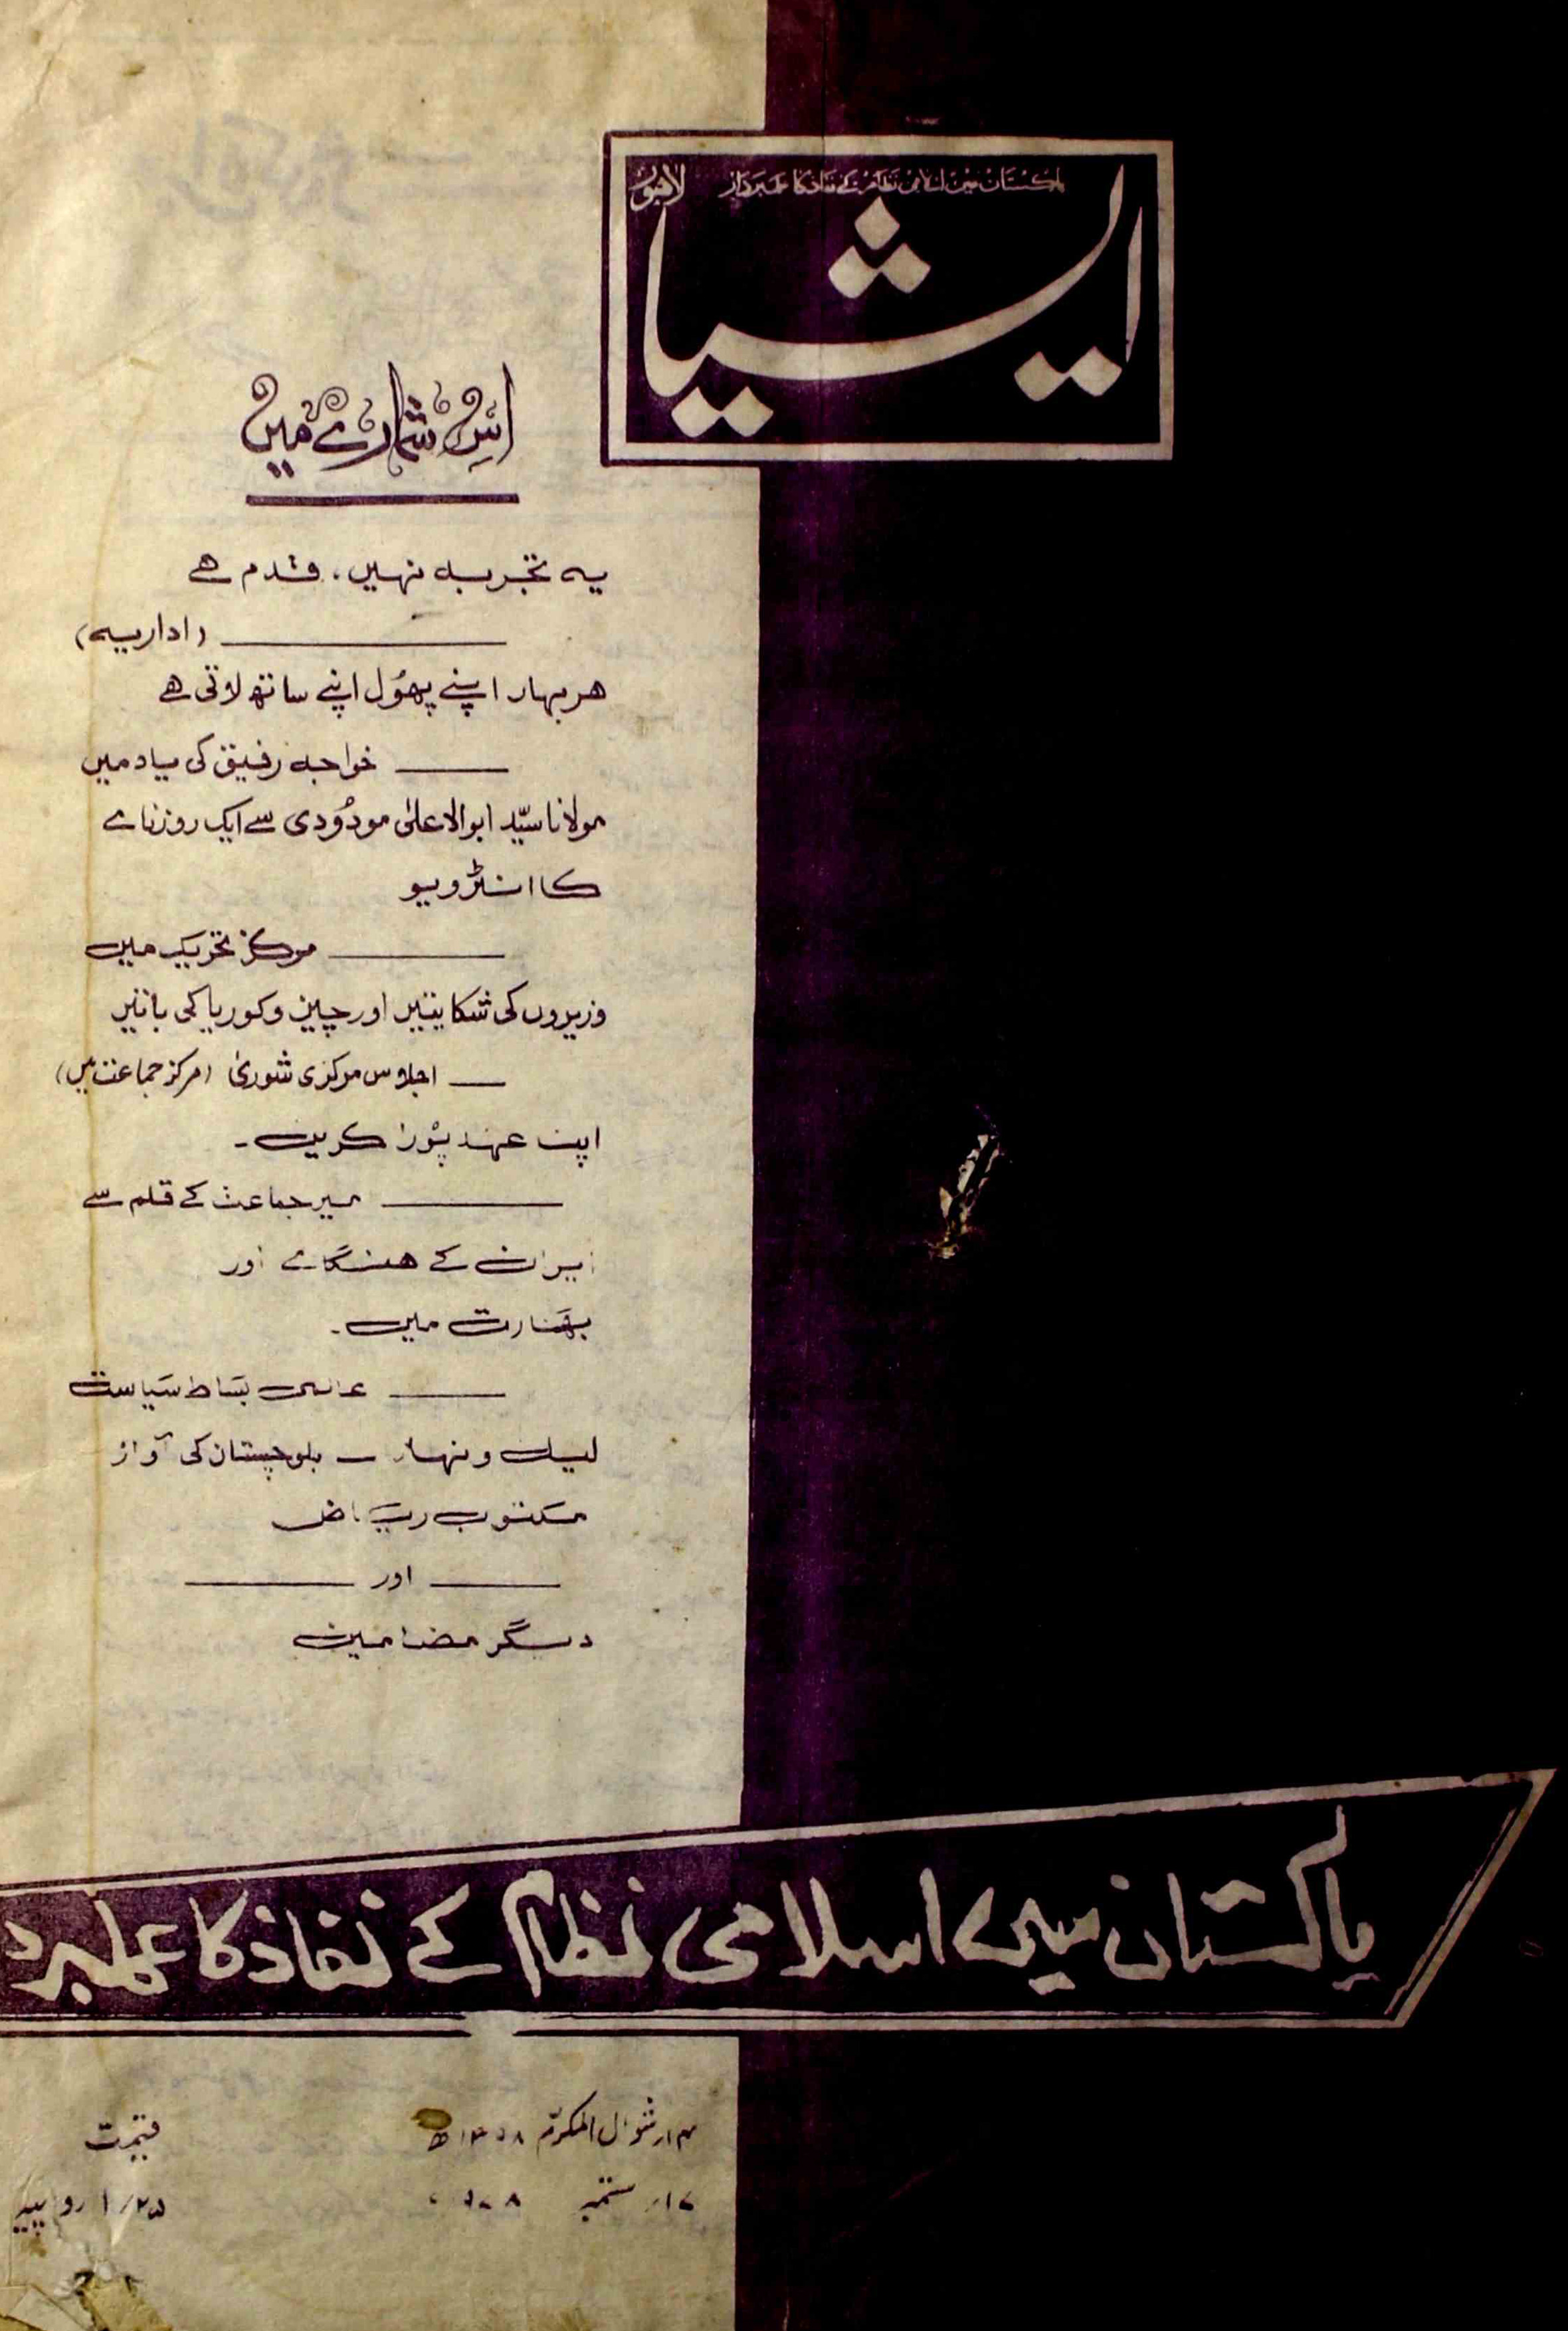 پاکستان میں اسلامی نظام کے نفاذ کا علمبردار
لاہور
ایشیا
اس شمارے میں
یہ تجربہ نہیں، قدم ہے
(اداریہ)
ہر بہار اپنے پھول اپنے ساتھ لاتی ہے
خواجہ رفیق کی یاد میں
مولانا سیّد ابوالاعلیٰ مودُودی سے ایک روزنامے
کا انٹرویو
مرکز تحریک میں
وزیروں کی شکایتیں اور چین و کوریا کی باتیں
اجلاس مرکزی شوریٰ (مرکز جماعت میں)
اپنا عہد پورا کریں۔
امیر جماعت کے قلم سے
ایران کے ہنگامے اور
بھارت میں۔
عالمی بساط سیاست
لیل و نہار – بلوچستان کی آواز
مکتوب ریاض
اور
دیگر مضامین
پاکستان میں اسلامی نظام کے نفاذ کا علمبرد
شوال المکرّم
۱۷ ستمبر
قیمت
۱/۲۵ روپیہ